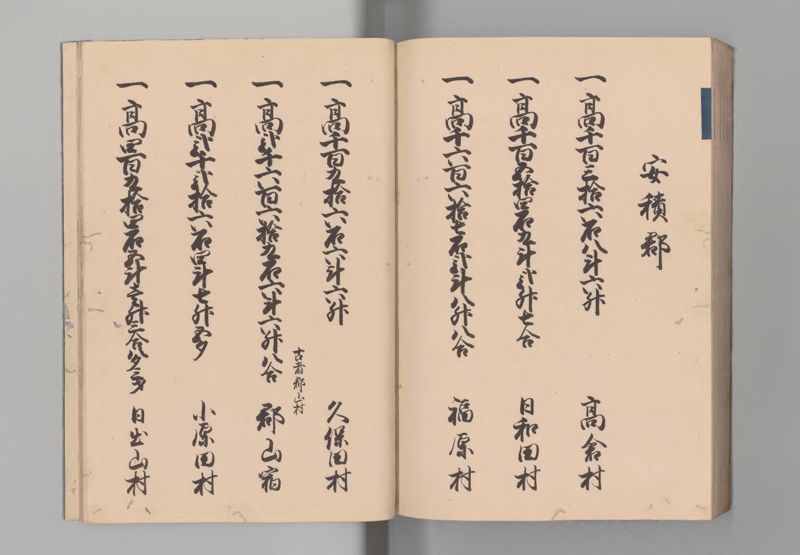 安積郡
一高千百三拾六石八斗六升
高倉村
一高千百五拾四石九斗弐升七合
日和田村
一高千六百六拾七石弐斗八升八合
福原村
一高千百九拾六石六斗六升
久保田村
一高弐千六百六拾九石六斗六升八合
古者郡山村
郡山宿
一高弐千弐拾六石四斗七升五夕
小原田村
一高四百九拾四石五斗壱升三合八夕三才
日出山村